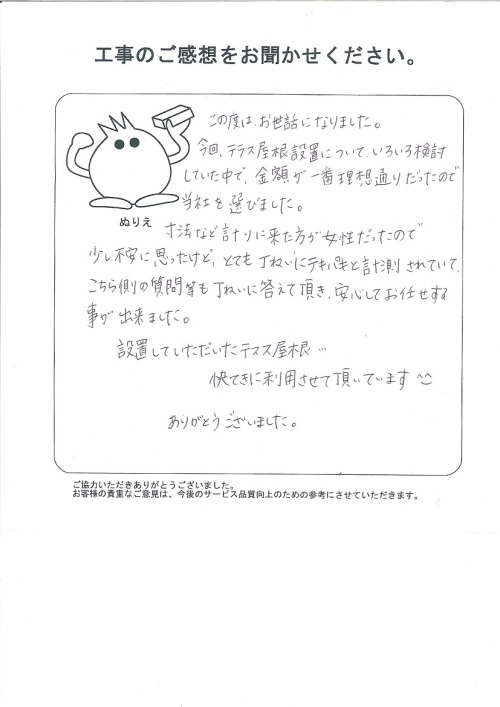 工事のご感想をお聞かせください。
この度は、お世話になりました。
今回、テラス屋根設置について、いろいろ検討
していた中で、金額が一番理想通りだったので
当社を選びました。
ぬりえ
寸法など計りに来た方が女性だったので
少し不安に思ったけど、とても丁ねいにテキパキと計測されていて、
こちら側の質問等も丁ねいに答えて頂き、安心してお任せする
事が出来ました。
設置していただいたテラス屋根…
快てきに利用させて頂いています^^
ありがとうございました。
ご協力いただきありがとうございました。
お客様の貴重なご意見は、今後のサービス品質向上のための参考にさせていただきます。